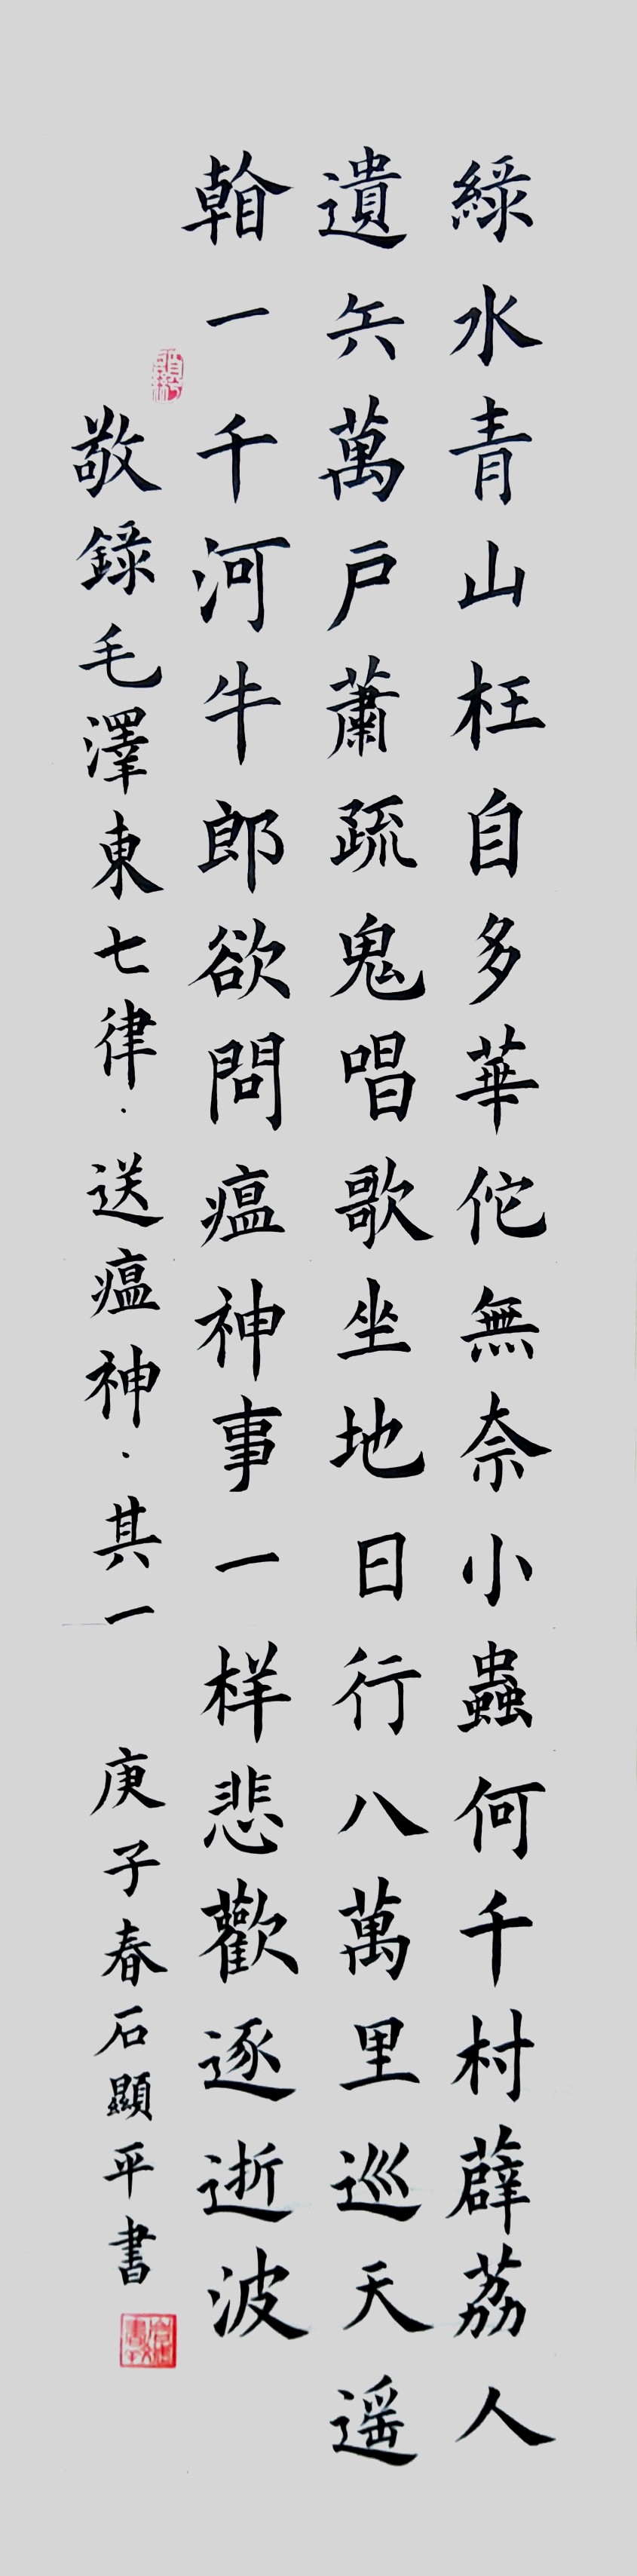 綠水青山枉自多華佗無奈小蟲何千村薜荔人
遺矢萬户蕭疏鬼唱歌坐地日行八萬里巡天遥
看一千河牛郎欲問瘟神事一样悲歡逐逝波
敬錄毛澤東七律·送瘟神·其一 庚子春石顯平書